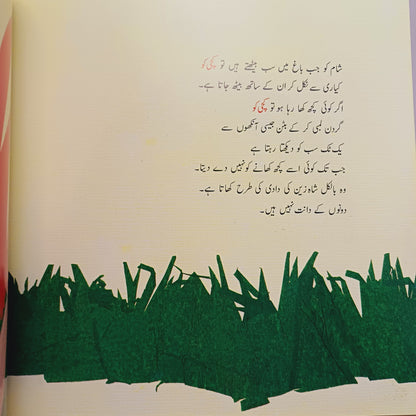 شام کو جب باغ میں سب بیٹھتے ہیں تو پچّی کو
کیاری سے نکل کر ان کے ساتھ بیٹھ جاتا ہے۔
اگر کوئی کچھ کھا رہا ہو تو پچّی کو
گردن لمبی کر کے بٹن جیسی آنکھوں سے
یک ٹک سب کو دیکھتا رہتا ہے
جب تک کوئی اسے کچھ کھانے کو نہیں دے دیتا۔
وہ بالکل شاہ زین کی دادی کی طرح کھاتا ہے۔
دونوں کے دانت نہیں ہیں۔